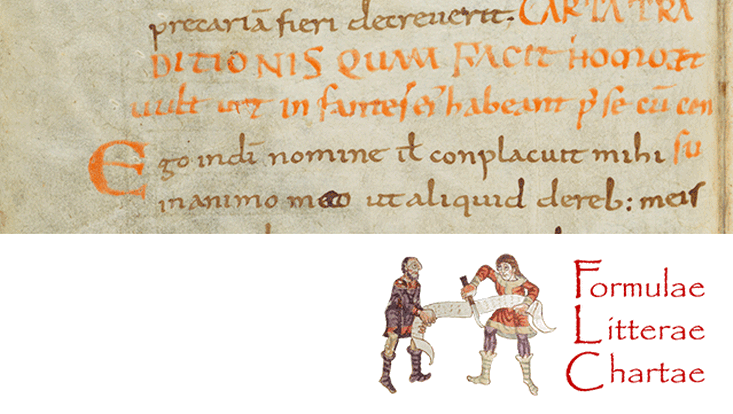 precariā fieri decreverit; CARTA TRA
DITIONIS QUAM FACIT homo et
vult ut infantes ei habeant p se cū cen
Ego indī nomine iƚ conplacuit mihi
in animo meo ut aliquid dereb: meis
Formulae
Litterae
Chartae